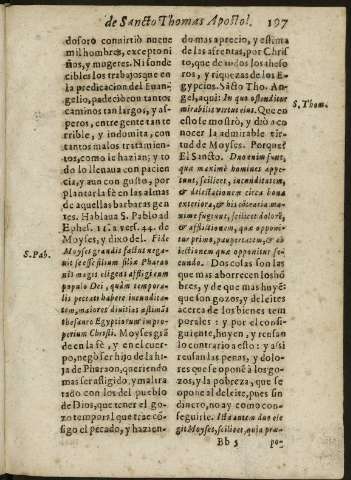 de Sancto Thomas Apostol. 197
dosoro conuirtiò nueue
mil hombres, excepto ni
ños, y mugeres. Ni son de
cibles los trabajos que en
la predicacion del Euan-
gelio, padeciò con tantos
caminos tan largos, y as-
peros, entre gente tan te
rrible, y indomita, con
tantos malos tratamien-
tos, como le hazian; y to
do lo lleuaua con pacien
cia, y aun con gusto, por
plantar la fè en las almas
de aquellas barbaras gen
tes. Hablaua S. Pablo ad
Ephes. 11. a vers. 44. de
Moyses, y dixo del. Fide
S. Pab.
Moyses grandis factus nega-
uit se esse filium filiæ Pharao
nis magis eligens affligi cum
populo Dei, quàm tempora-
lis peccati habere incundita-
tem, maiores diuitias æstimãs
thesauro Egyptiorum impro-
perium Christi. Moyses grã
de en la fè, y en el cuer-
po, negò ser hijo de la hi-
ja de Pharaon, queriendo
mas ser afligido, y maltra
tado con los del pueblo
de Dios, que tener el go-
zo temporal que trae cõ-
sigo el pecado, y hazien-
do mas aprecio, y estima
de las afrentas, por Chris
to, que de todos los theso
ros, y riquezas de los E-
gypcios. Sãcto Tho. An-
gel, aqui: In quo ostenditur
S. Thom.
mirabilis virtus eius. Que en
esto se mostrò, y diò a co
nocer la admirable vir-
tud de Moyses. Porque?
El Sancto. Duo enim sunt,
quæ maximè homines appe-
tunt, scilicet, incunditatem,
& delectationem circa bona
exteriora, & his contraria ma-
ximè fugiunt, scilicet dolorẽ,
& afflictionem, quæ opponi-
tur primo, paupertatem, & ab
iectionem quæ opponitur se-
cundo. Dos cosas son las
que mas aborrecen los hõ
bres, y de que mas huyẽ:
que son gozos, y deleites
acerca de los bienes tem
porales: y por el consi-
guiente, huyen, y reusan
lo contrario a esto: y assi
reusan las penas, y dolo-
res que se oponẽ a los go-
zos, y la pobreza, que se
opone al deleite, pues sin
dinero, no ay como con-
seguirle. Ista autem duo ele
git Moyses, scilicet, quia præ-
Bb 5 po-